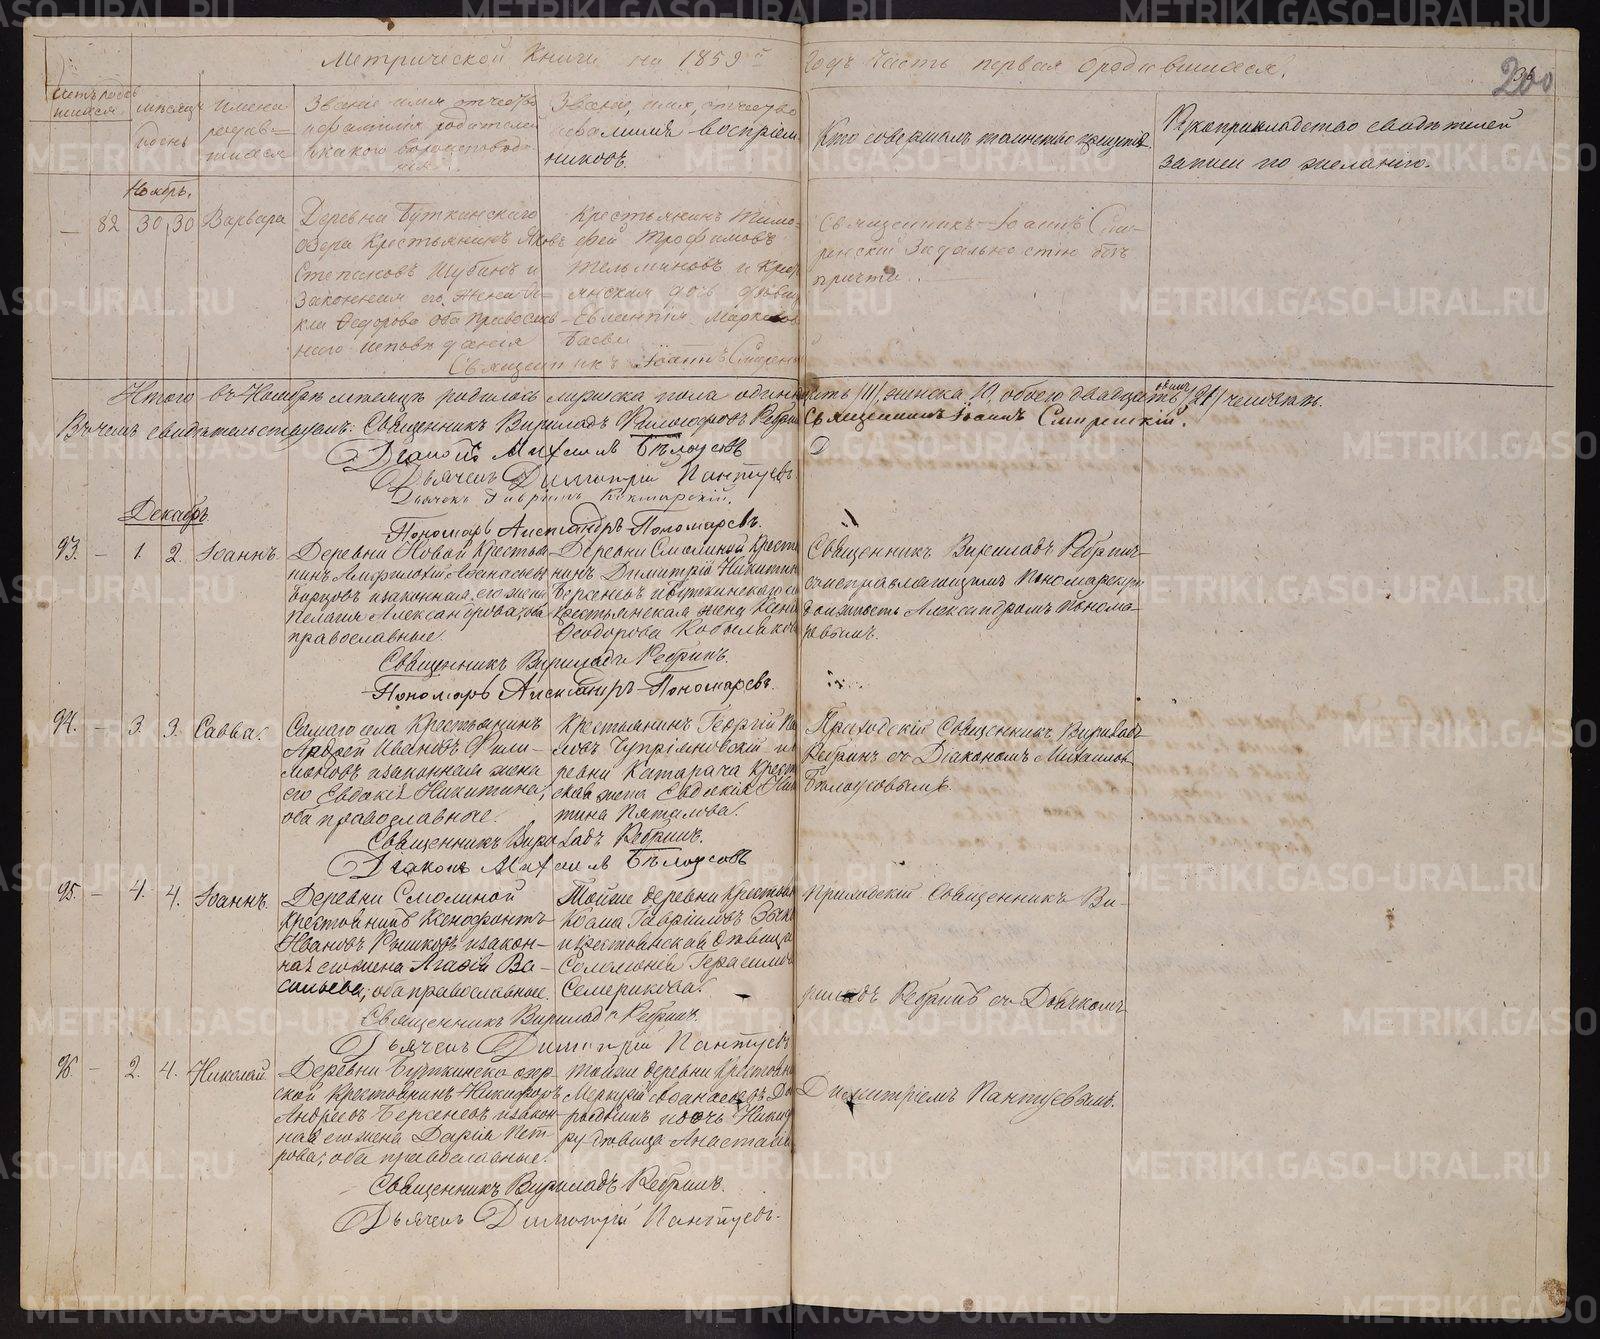 Метрической Книги на 1859й
Годъ Часть первая о родившихся.
200
Счетъ родившихся
мѣсяцъ
и день
Имена родившихся
Званіе имя отчество
и фамилія родителей
и какого вероисповеданія.
Званіе, имя, отчество
и фамилія воспріем-
никовъ.
Кто совершалъ таинство крещенія
Рукоприкладство свидѣтелей
записи по желанію.
Ноябрь.
— 82 30 30 Варвара
Деревни Буткинскаго
озера Крестьянинъ Яковъ
Степановъ Шубинъ и
Законная его жена
Федорова оба Православ-
наго исповѣданія
Крестьянинъ Тимо-
фей Трофимовъ
Тельминовъ и Крест
янская дочь дѣвица
Евлампія Маркова
Священникъ Іоаннъ
Смиренскій За дальностію безъ
причта.
Священникъ Іоаннъ Смирен
Итого въ Ноябрѣ мѣсяцѣ родилось мужеска пола одинадцать /11/, женска 10, обоего двадцать одинъ /21/ человѣкъ.
Въ чемъ свидѣтельствуемъ: Священникъ Вириладъ Философовъ Ребринъ
Священникъ Іоаннъ Смиренскій.
Діаконъ Михаилъ Бѣлоусовъ
Дьячекъ Димитрій Пантуевъ.
Дьячекъ Гавріилъ
Пономарь Александръ Пономаревъ.
Декабрь.
93. — 1. 2. Іоаннъ.
Деревни Новой Крестья
нинъ Амфилохій Аѳанасьевъ
и законная его жена
Пелагія Александрова, оба
православные.
Деревни Смолиной Кресть
нинъ Димитрій Никитин
Берсеневъ и Буткинскаго
крестьянская жена
Ѳеодорова Кобылкова
Священникъ Вириладъ Ребринъ
съ исправляющимъ Пономарскую
должность Александромъ Понома-
ревымъ.
Священникъ Вириладъ Ребринъ.
Пономарь Александръ Пономаревъ.
94. — 3. 3. Савва.
Самаго села Крестьянинъ
Ивановъ Фили-
моновъ и законная жена
его Евдокія Никитина,
оба православные.
Крестьянинъ Георгій Па
ловъ Чупріяновскій и
ревни Катарача Крест
ская жена Евдокія Ни
тина Пяталова.
Приходскій Священникъ Вириладъ
Ребринъ съ Діакономъ Михаиломъ
Бѣлоусовымъ.
Священникъ Вириладъ Ребринъ.
Діаконъ Михаилъ Бѣлоусовъ
95. — 4. 4. Іоаннъ.
Деревни Смолиной
Крестьянинъ Ксенофонтъ
Ивановъ и закон-
ная его жена Агафія Ва-
сильева, оба православные.
Тойже деревни Крестьян
Гавріиловъ
и крестьянская дѣвица
Соломонія Герасимо
Семерикова.
Приходскій Священникъ Ви-
риладъ Ребринъ съ Дьячкомъ
Священникъ Вириладъ Ребринъ.
Дьячекъ Димитрій Пантуевъ
96. — 2. 4. Николай.
Деревни Буткинско озер-
ской Крестьянинъ Никифоръ
Андреевъ Берсеневъ и закон-
ная его жена Дарія Пет-
рова, оба православные.
тойже деревни Крестьян
Меркурій Аѳанасьевъ
дочь
дѣвица Анастасія
Димитріемъ Пантуевымъ.
Священникъ Вириладъ Ребринъ.
Дьячекъ Димитрій Пантуевъ.
METRIKI.GASO-URAL.RU